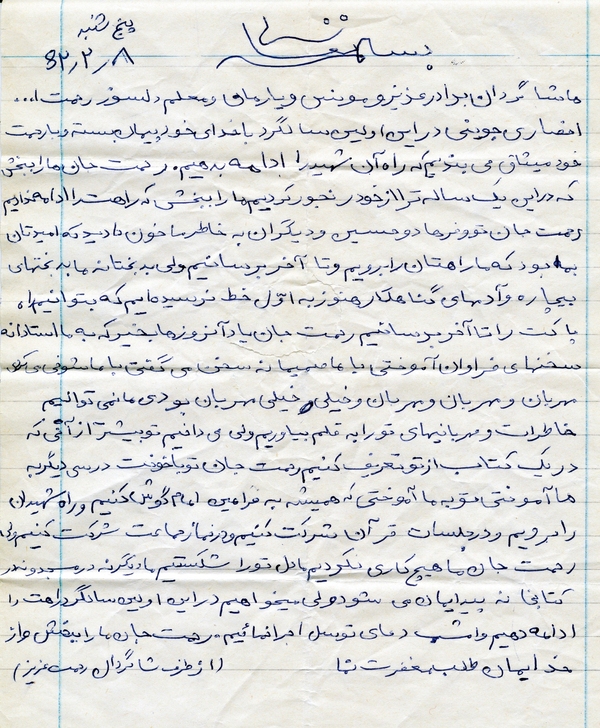 پنج شنبه
۸۲٫۲٫۸
بسمه تعالی
ما شاگردان برادر عزیز و مونس و یارمان و معلم دلسوز رحمت ا...
انصاری جونقی در این اولین سالگرد با خدای خود پیمان بسته و با رحمت
خود میثاق می بندیم که راه آن شهید را ادامه بدهیم. رحمت جان ما را ببخش
که در این یک ساله ترا از خود رنجور کردیم ما را ببخش که راهت را ادامه ندادیم
رحمت جان تو و فرهاد و حسین و دیگران به خاطر ما خون دادید که امیدتان
بما بود که ما راهتان را برویم و تا آخر برسانیم ولی بدبختانه ما بدبختهای
بیچاره و آدمهای گناهکار هنوز به اول خط نرسیده ایم که بتوانیم راه
پاکت را تا آخر برسانیم رحمت جان یاد آنروزها بخیر که به ما استادانه
سخنهای فراوان آموختی با ما صمیمانه سخن می گفتی با ما شوخی می کردی
مهربان و مهربان و مهربان و خیلی و خیلی مهربان بودی ما نمی توانیم
خاطرات و مهربانیهای تو را به قلم بیاوریم ولی می دانیم تو بیشتر از آنی که
در یک کتاب از تو تعریف کنیم رحمت جان تو با خونت درسی دیگر به
ما آموختی تو به ما آموختی که همیشه به فرامین امام گوش کنیم و راه شهیدان
را برویم و در جلسات قرآن شرکت کنیم و در نماز جماعت شرکت کنیم ولی
رحمت جان ما هیچ کاری نکردیم ما دل تو را شکستیم ما دیگر نه در مسجد و نه در
کتابخانه پیدایمان می شود ولی میخواهیم در این اولین سالگرد راهت را
ادامه دهیم و امشب دعای توسل اجرا نمائیم. رحمت جان ما را ببخش و از
خدایمان طلب مغفرت نما (از طرف شاگردان رحمت عزیز)